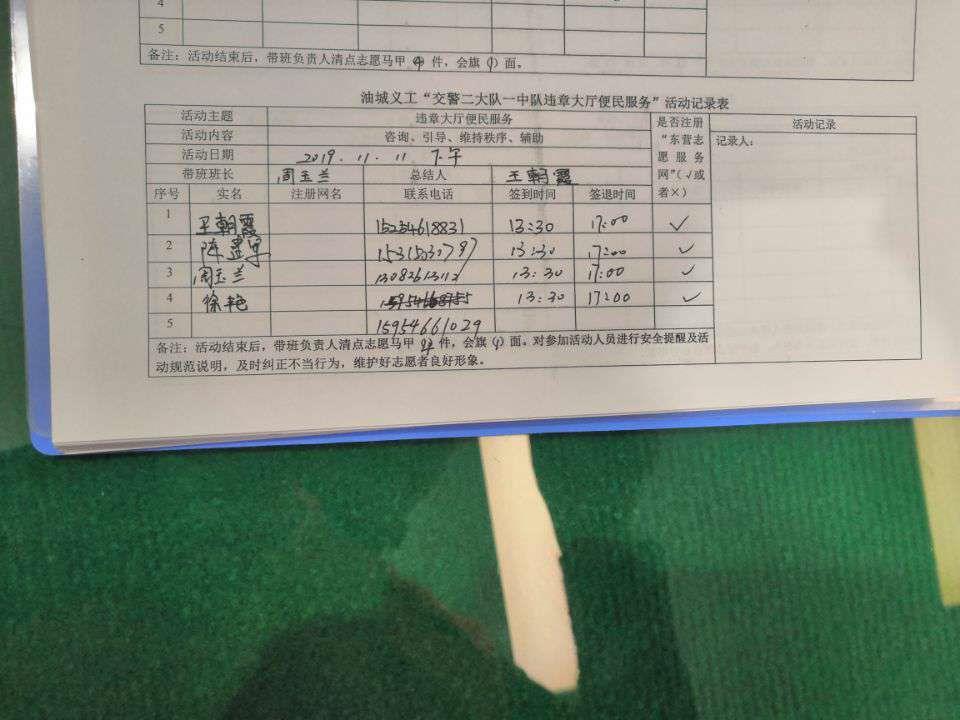 4
5
备注：活动结束后，带班负责人清点志愿马甲 4 件，会旗(1)面。
油城义工“交警二大队一中队违章大厅便民服务”活动记录表
活动主题 违章大厅便民服务 是否注册“东营志愿服务网”(√或者×) 活动记录
活动内容 咨询、引导、维持秩序、辅助 记录人：
活动日期 2019.11.11 下午
带班班长 周玉兰 总结人 王朝霞
序号 实名 注册网名 联系电话 签到时间 签退时间
1 王朝霞 15234618831 13:30 17:00 ✓
2 陈 13:30 17:00 ✓
3 周玉兰 13082613112 13:30 17:00 ✓
4 徐艳 13:30 17:00 ✓
5 15954661029
备注：活动结束后，带班负责人清点志愿马甲 4 件，会旗(1)面。对参加活动人员进行安全提醒及活
动规范说明，及时纠正不当行为，维护好志愿者良好形象。